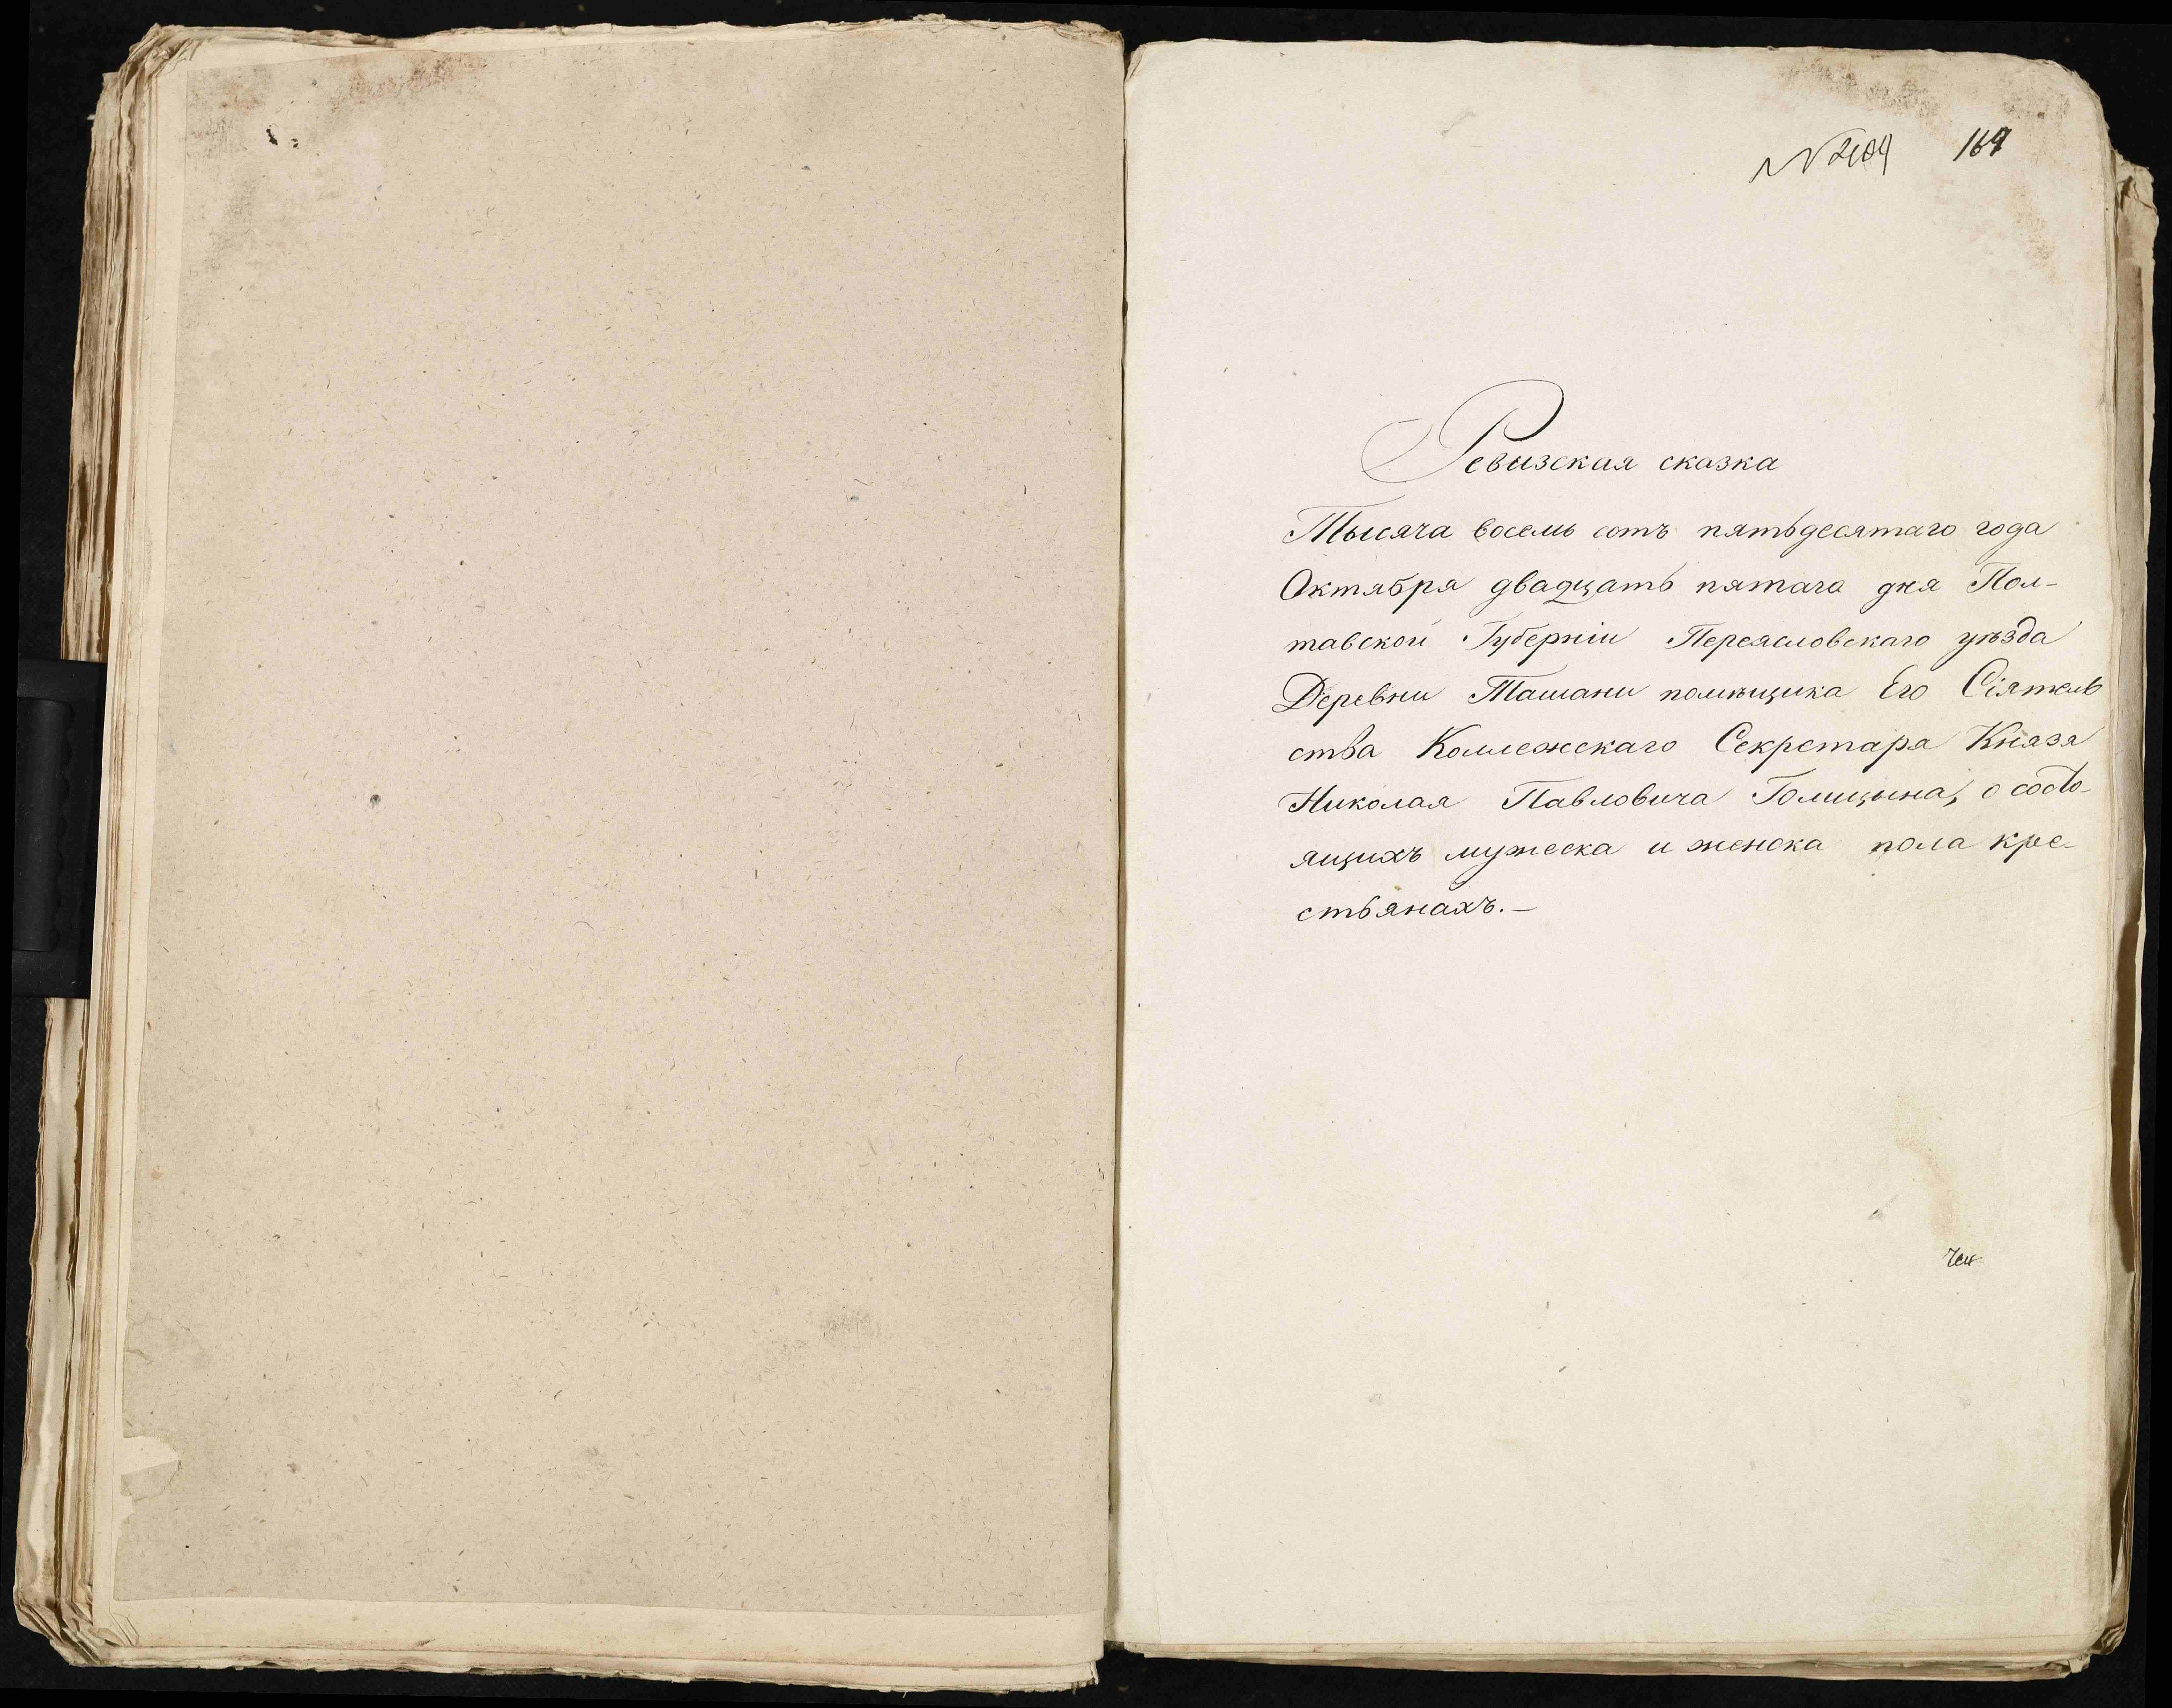 169
Ревизская сказка
Тысяча восемь сотъ пятьдесятаго года
Октября двадцать пятаго дня Пол-
тавской Губерніи Переясловскаго уѣзда
Деревни Ташани помѣщика Его Сіятель
ства Коллежскаго Секретаря Князя
Николая Павловича Голицына, о состо-
ящихъ мужеска и женска пола кре-
стьянахъ.—